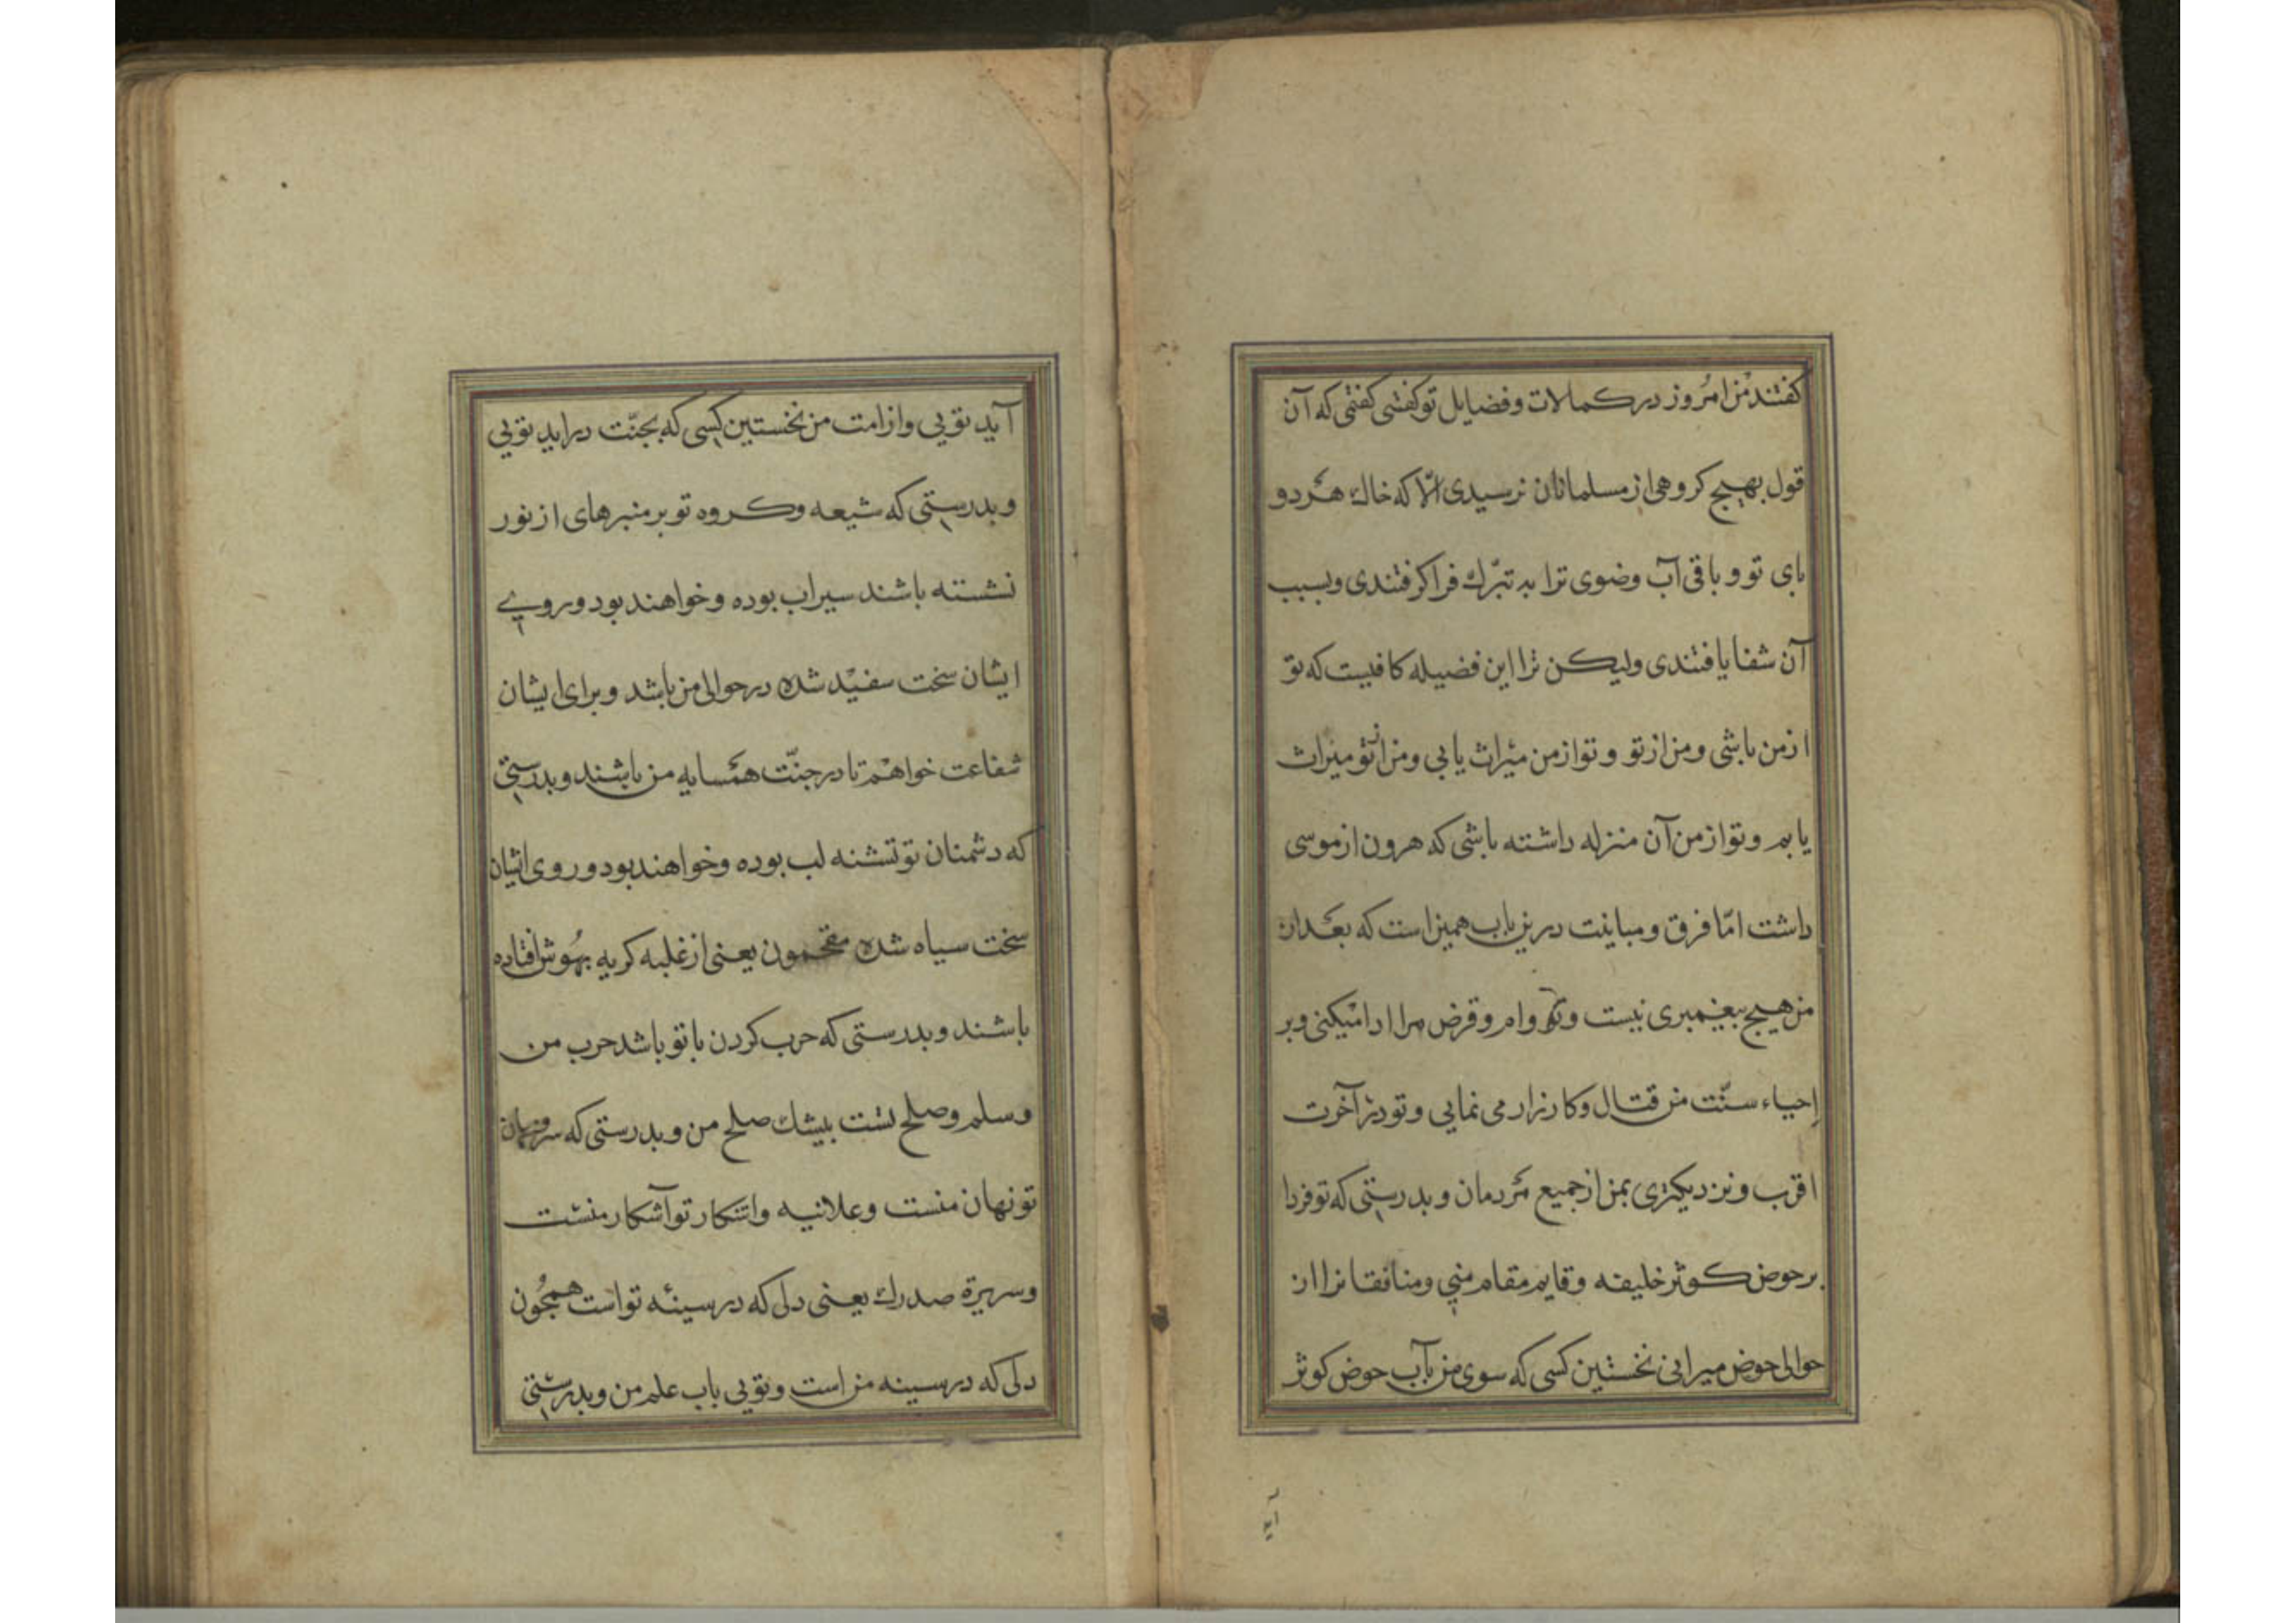 کفتند من امروز در کمالات و فضایل تو کفتی کفتی که آن
قول بهیچ کروهی از مسلمانان نرسیدی الّا که خاك هر دو
بای تو و باقی آب وضوی ترا به تبرّك فرا کرفتندی و بسبب
آن شفا یافتندی ولیکن ترا این فضیله کافیست که تو
از من باشی و من از تو و تو از من میراث یابی و من از تو میراث
یابم و تو از من آن منزله داشته باشی که هرون از موسی
داشت امّا فرق و مباینت درین باب همین است که بعد از
من هیچ بیغمبری نیست و تو وام و قرض مرا ادا میکنی و بر
إحیاء سنّت من قتال و کارزار می نمایی و تو در آخرت
اقرب و نزدیکتری بمن از جمیع مردمان و بدرستی که تو فردا
بر حوض کوثر خلیفه و قایم مقام منی و منافقانرا از
حوالی حوض میرانی نخستین کسی که سوی من بآب حوض کوثر
آید
آید تویی و از امت من نخستین کسی که بجنّت دراید تویی
و بدرستی که شیعه و کروه تو بر منبرهای از نور
نشسته باشند سیراب بوده و خواهند بود و روی
ایشان سخت سفید شده در حوالی من باشد و برای ایشان
شفاعت خواهم تا در جنّت همسایه من باشند و بدرستی
که دشمنان تو تشنه لب بوده و خواهند بود و روی ایشان
سخت سیاه شده مقحمون یعنی از غلبه کریه بهوش افتاده
باشند و بدرستی که حرب کردن با تو باشد حرب من
و سلم و صلح تست بیشك صلح من و بدرستی که سر و نهان
تو نهان منست و علانیه و اشکار تو آشکار منست
و سریرة صدرك یعنی دلی که در سینه تو است همچون
دلی که در سینه من است و تویی باب علم من و بدرستی